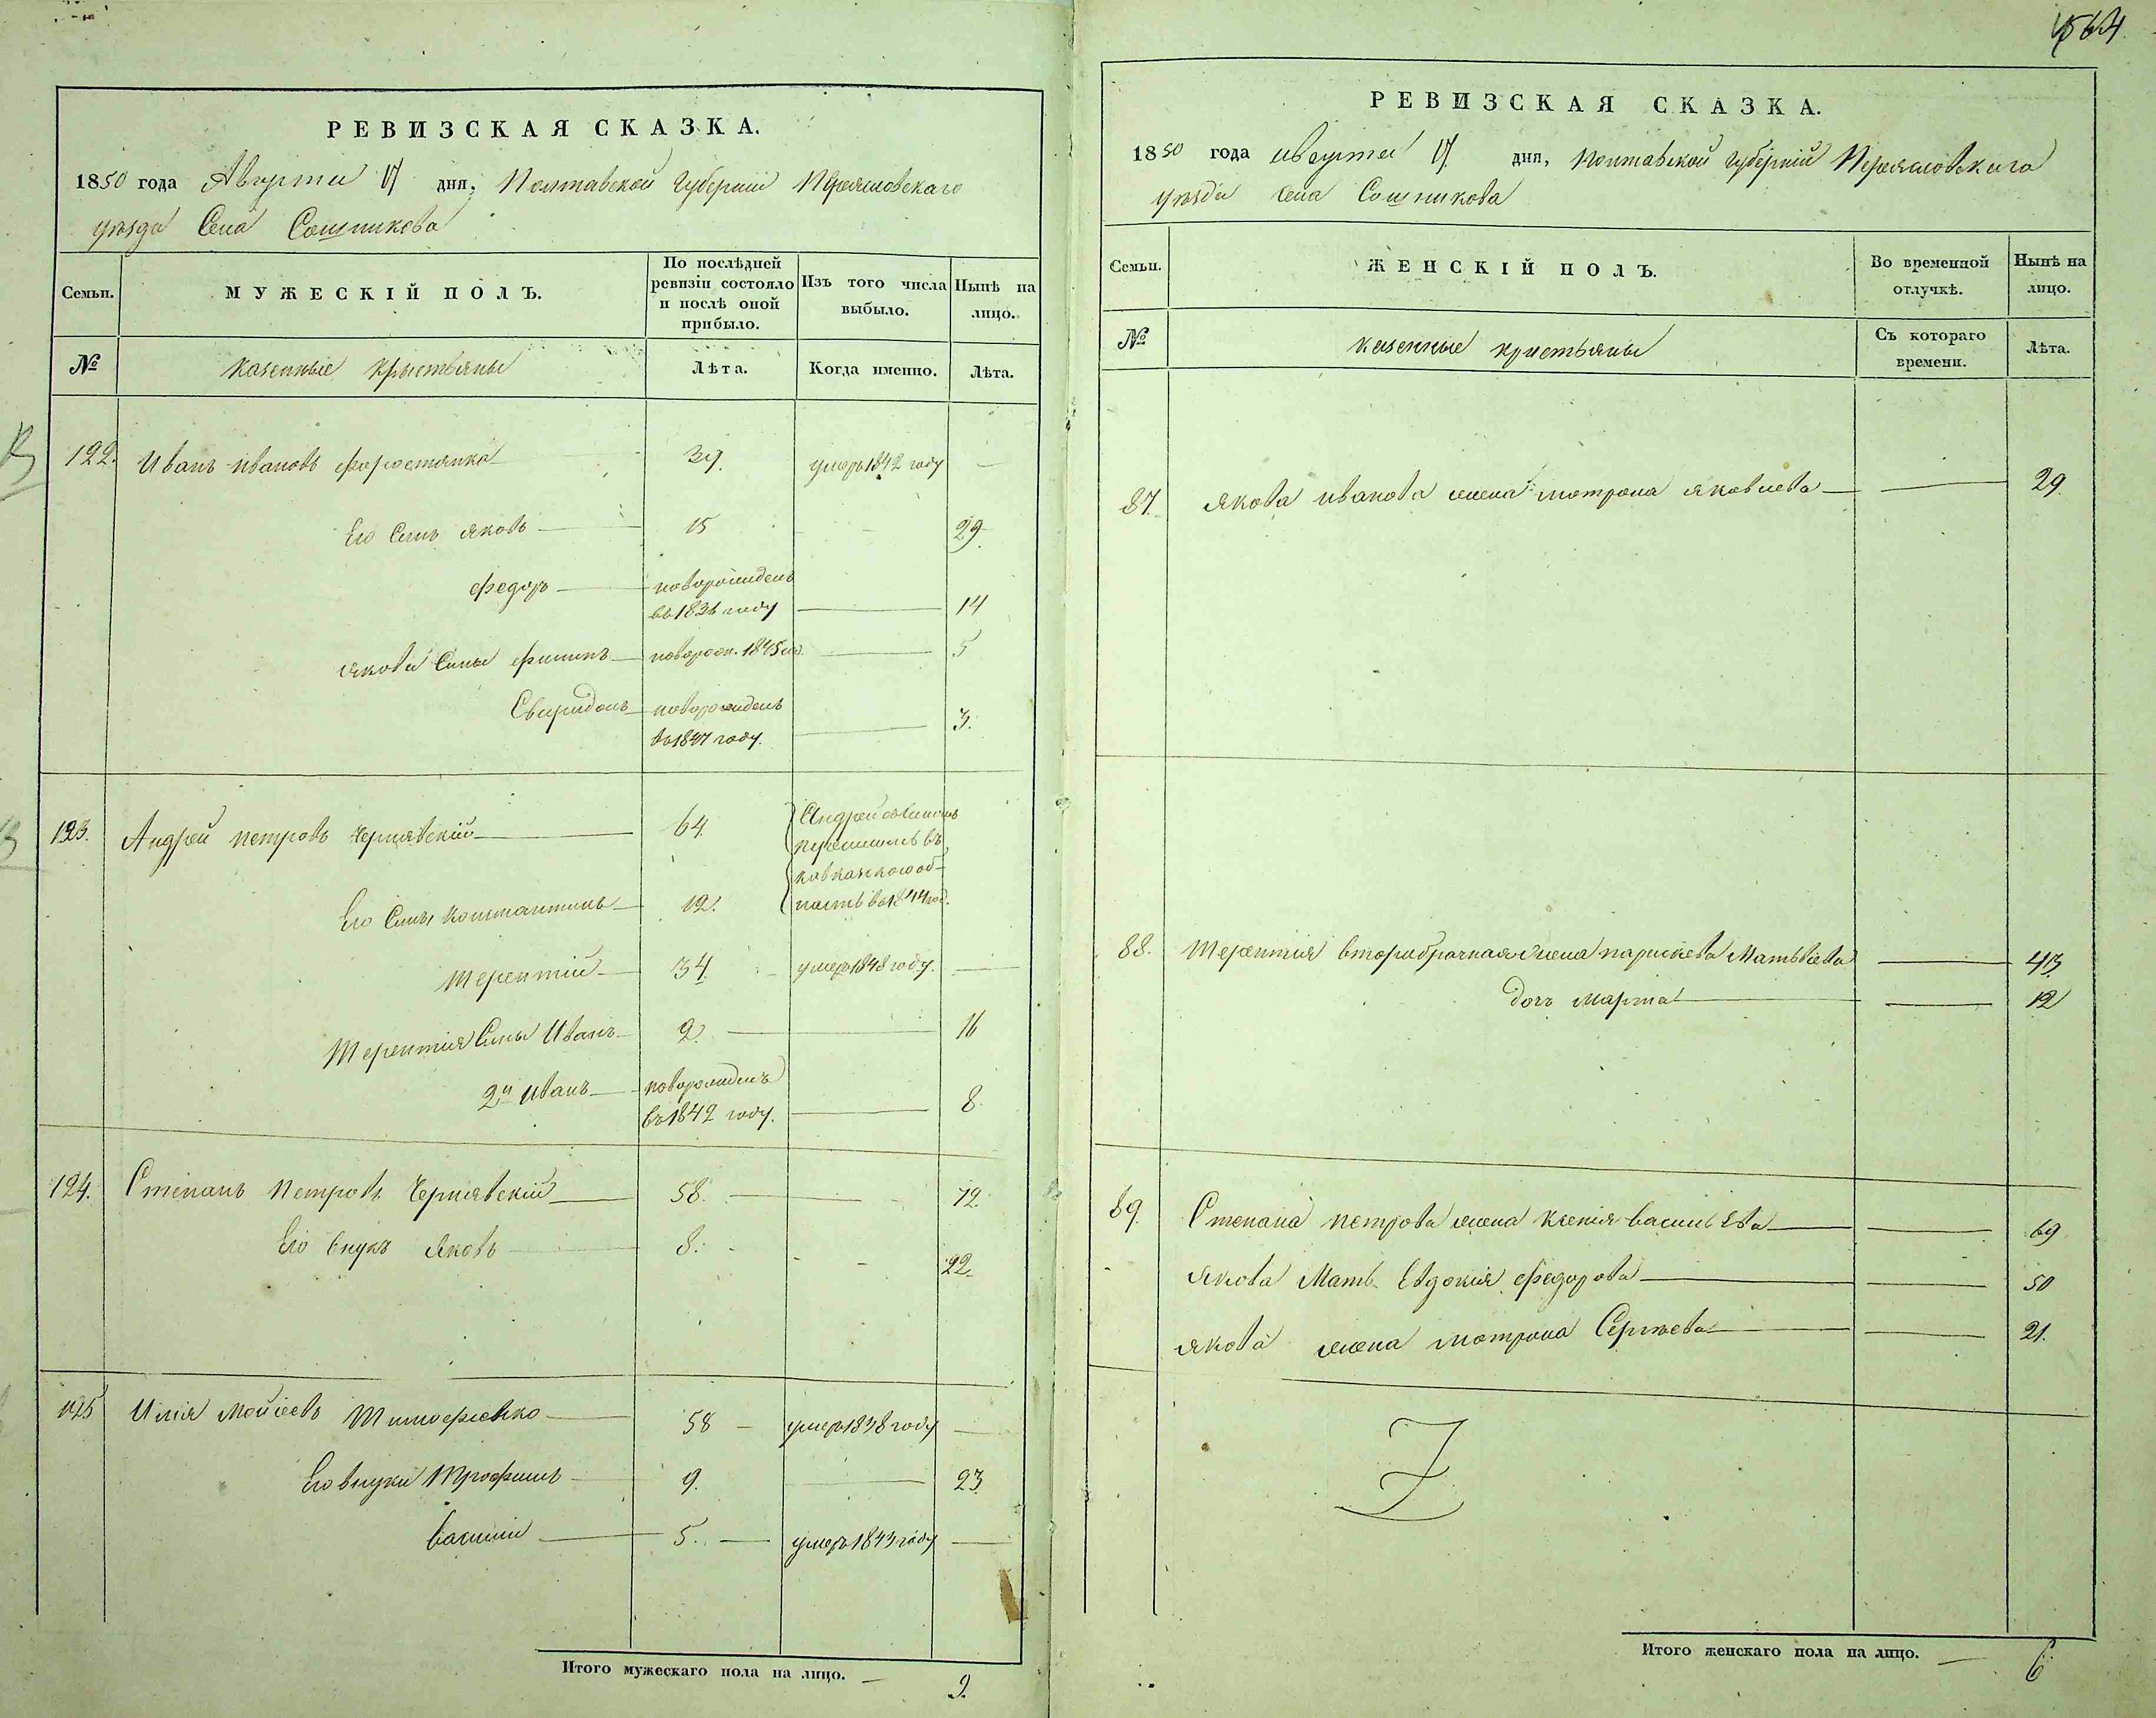 РЕВИЗСКАЯ СКАЗКА.
1850 года Августа 17 дня, Полтавской Губернии Переяславскаго
уезда Села Сошникова
Семьи.
МУЖЕСКІЙ ПОЛЪ.
По послѣдней ревизіи состояло и послѣ оной прибыло.
Изъ того числа выбыло.
Нынѣ на лицо.
№
казенные крестьяны
Лѣта.
Когда именно.
Лѣта.
122. Иванъ ивановъ форостянко 39. умеръ 1842 году
Его Сынъ яковъ 15 29
федоръ новорожденъ въ 1836 году 14
якова Сыны филипъ новорож. 1845 5
Свиридонъ новорожденъ въ 1847 году. 3.
123. Андрей петровъ Чернявскій 64.
Андрей съ сыномъ
Его Сынъ константинъ 12. въ 1844 год.
терентій 34 умеръ 1848 году.
терентія Сыны Иванъ 2. 16
2й иванъ новорожденъ въ 1842 году. 8.
124. Степанъ петровъ Чернявскій 58. 72.
Его внукъ яковъ 8. 22.
125 Илія мойсеевъ Тимофіевко 58 умеръ 1838 году
Его внуки Трофимъ 9. 23
василій 5. умеръ 1843 году
Итого мужескаго пола на лицо. 9.
564
РЕВИЗСКАЯ СКАЗКА.
1850 года августа 17 дня, полтавской губерніи Переяславскаго
уезда села Сошникова
Семьи.
ЖЕНСКІЙ ПОЛЪ.
Во временной отлучкѣ.
Нынѣ на лицо.
№
казенные крестьяны
Съ котораго времени.
Лѣта.
87. якова иванова жена мотрона яковлева 29.
88. терентія вторибрачная жена параскева Матвѣева 43
дочь марфа 12
89. Степана петрова жена ксенія васильева 69
якова Мать Евдокія федорова 50
якова жена мотрона Сергѣева 21.
Итого женскаго пола на лицо. 6